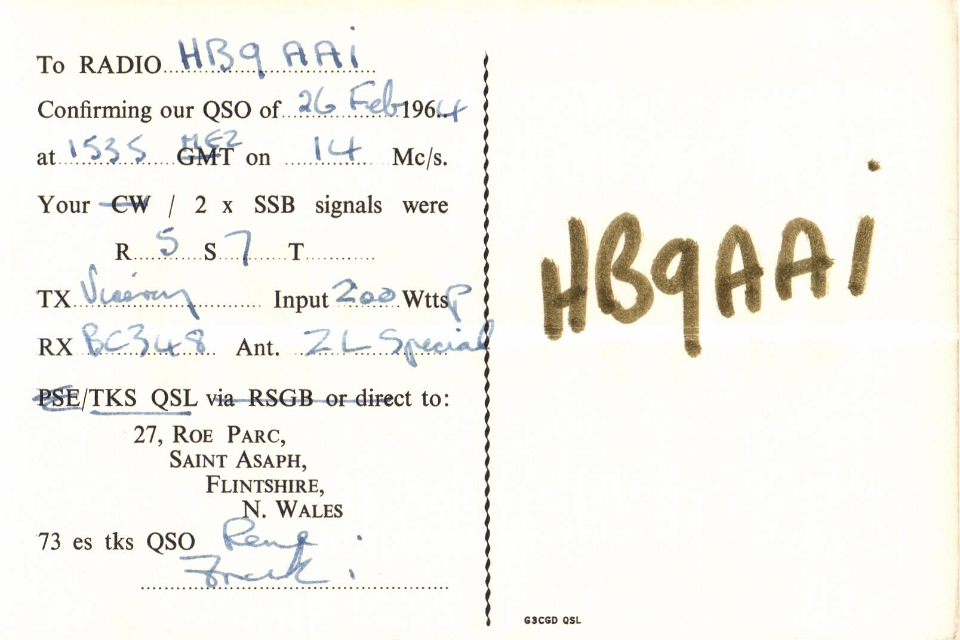 To RADIO HB9AAi
Confirming our QSO of 26 Feb 1964
at 1535 GMT MEZ on 14 Mc/s.
Your CW / 2 x SSB signals were
R 5 S 7 T
TX Viceroy Input 200 Wtts P
RX BC348 Ant. ZL Special
PSE/TKS QSL via RSGB or direct to:
27, ROE PARC,
SAINT ASAPH,
FLINTSHIRE,
N. WALES
73 es tks QSO Rene
Frank
HB9AAi
G3CGD QSL